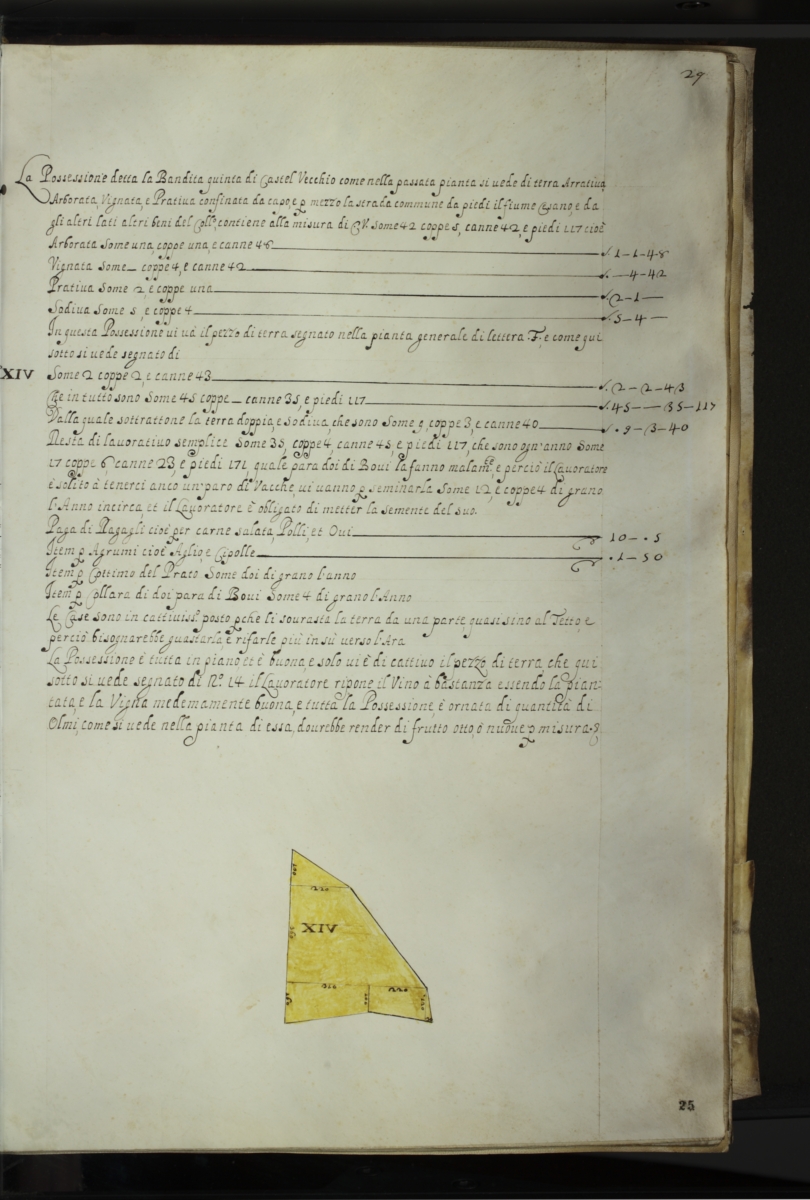 29
La Possessione detta la Bandita quinta di Castel Vecchio come nella passata pianta si uede di terra Arratiua
Arborata, Vignata, e Pratiua confinata da capo, e p mezzo la strada commune da piedi il fiume Esano, e da
gli altri lati altri beni del Coll.º contiene alla misura di C.V. Some 42 coppe 5, canne 42, e piedi 117 cioè
Arborata Some una, coppe una, e canne 46 1-1-48
Vignata Some — coppe 4, e canne 42 —4-42
Pratiua Some 2, e coppe una 2-1—
Sodiua Some 5, e coppe 4 5-4—
In questa Possessione ui uà il pezzo di terra segnato nella pianta generale di lettera F. e come qui
sotto si uede segnato di
XIV Some 2 coppe 2, e canne 43 2-2-43
Che in tutto sono Some 45 coppe — canne 35, e piedi 117 45——35-117
Dalla quale sottrattone la terra doppia, e Sodiua, che sono Some 9 coppe 3, e canne 40 9-3-40
Resta di lauoratiuo semplice Some 35, coppe 4, canne 45, e piedi 117, che sono ogn'anno Some
17 coppe 6 canne 23, e piedi 171, quale para doi di Boui la fanno malam.te e perciò il Lauoratore
è solito à tenerci anco un paro di Vacche, ui uanno p seminarla Some 12, e coppe 4 di grano
l'Anno incirca et il Lauoratore è obligato di metter la semente del suo.
Paga di Regagli cioè per carne salata, Polli, et Oui 10-.5
Item p Agrumi cioè Aglio, e Cipolle .1-50
Item p Cottimo del Prato Some doi di grano l'anno
Item p Collara di doi para di Boui Some 4 di grano l'Anno
Le Case sono in cattiuiss.º posto pche li sourasta la terra da una parte quasi sino al Tetto, e
perciò bisognarebbe guastarla, e rifarle più in sù uerso l'Ara
La Possessione è tutta in piano et è buona, e solo ui è di cattiuo il pezzo di terra che qui
sotto si uede segnato di Nº. 14 il Lauoratore ripone il Vino à bastanza essendo la pian-
tata, e la Vigna medemamente buona, e tutta la Possessione è ornata di quantità di
Olmi, come si uede nella pianta di essa, dourebbe render di frutto otto, ò nuoue p misura.
220
XIV
220
25